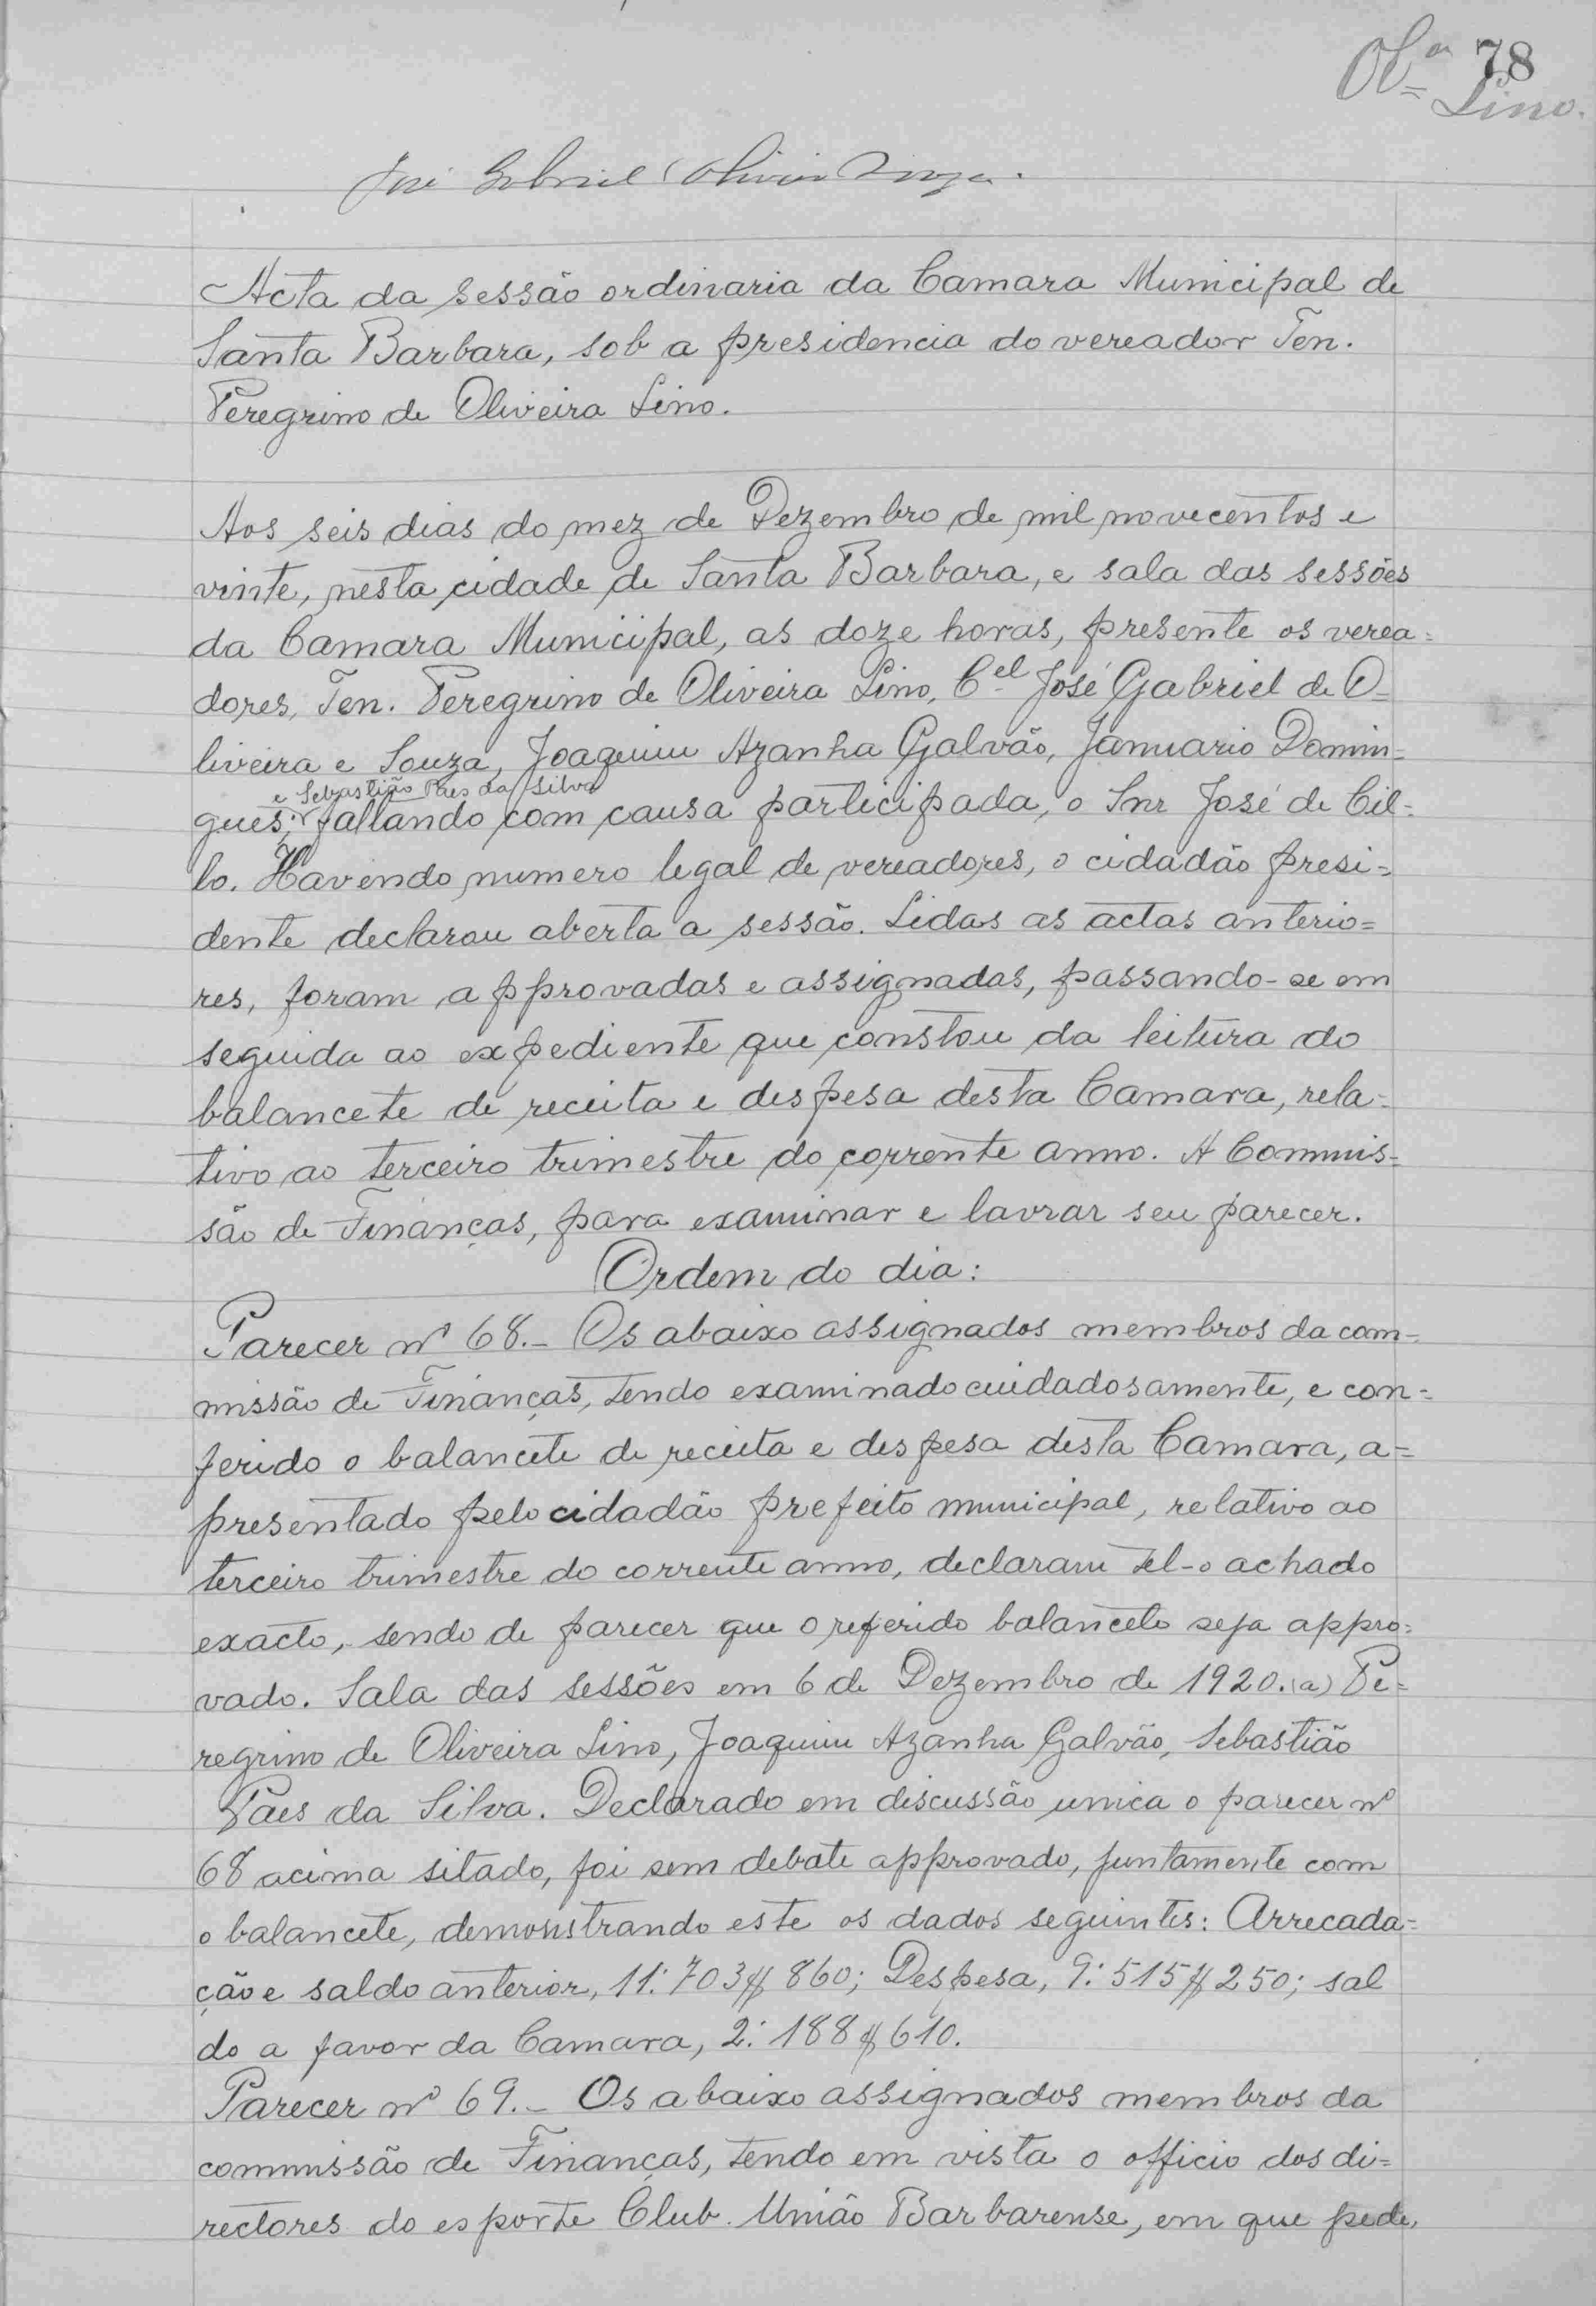 Olra 78
Lino.
José Gabriel Oliveira Souza.
Acta da sessão ordinaria da Camara Municipal de
Santa Barbara, sob a presidencia do vereador Ten.
Peregrino de Oliveira Lino.
Aos seis dias do mez de Dezembro de mil novecentos e
vinte, nesta cidade de Santa Barbara, e sala das sessões
da Camara Municipal, as doze horas, presente os verea=
dores, Ten. Peregrino de Oliveira Lino, Cel José Gabriel de O=
liveira e Souza, Joaquim Azanha Galvão, Januario Domin=
e Sebastião Paes da Silva
gues; faltando com causa participada, o Snr José de Cil=
lo. Havendo numero legal de vereadores, o cidadão presi=
dente declarou aberta a sessão. Lidas as actas anterio=
res, foram approvadas e assignadas, passando-se em
seguida ao expediente que constou da leitura do
balancete de receita e despesa desta Camara, rela=
tivo ao terceiro trimestre do corrente anno. A Commis=
são de Finanças, para examinar e lavrar seu parecer.
Ordem do dia:
Parecer nº 68.- Os abaixo assignados membros da com=
missão de Finanças, tendo examinado cuidadosamente, e con=
ferido o balancete de receita e despesa desta Camara, a=
presentado pelo cidadão prefeito municipal, relativo ao
terceiro trimestre do corrente anno, declaram tel-o achado
exacto, sendo de parecer que o referido balancete seja appro=
vado. Sala das sessões em 6 de Dezembro de 1920. (a) Pe=
regrino de Oliveira Lino, Joaquim Azanha Galvão, Sebastião
Paes da Silva. Declarado em discussão unica o parecer nº
68 acima sitado, foi sem debate approvado, juntamente com
o balancete, demonstrando este os dados seguintes: Arrecada=
ção e saldo anterior, 11:703$860; Despesa, 9:515$250; sal
do a favor da Camara, 2:188$610.
Parecer nº 69.- Os abaixo assignados membros da
commissão de Finanças, tendo em vista o officio dos di=
rectores do esporte Club União Barbarense, em que pede,